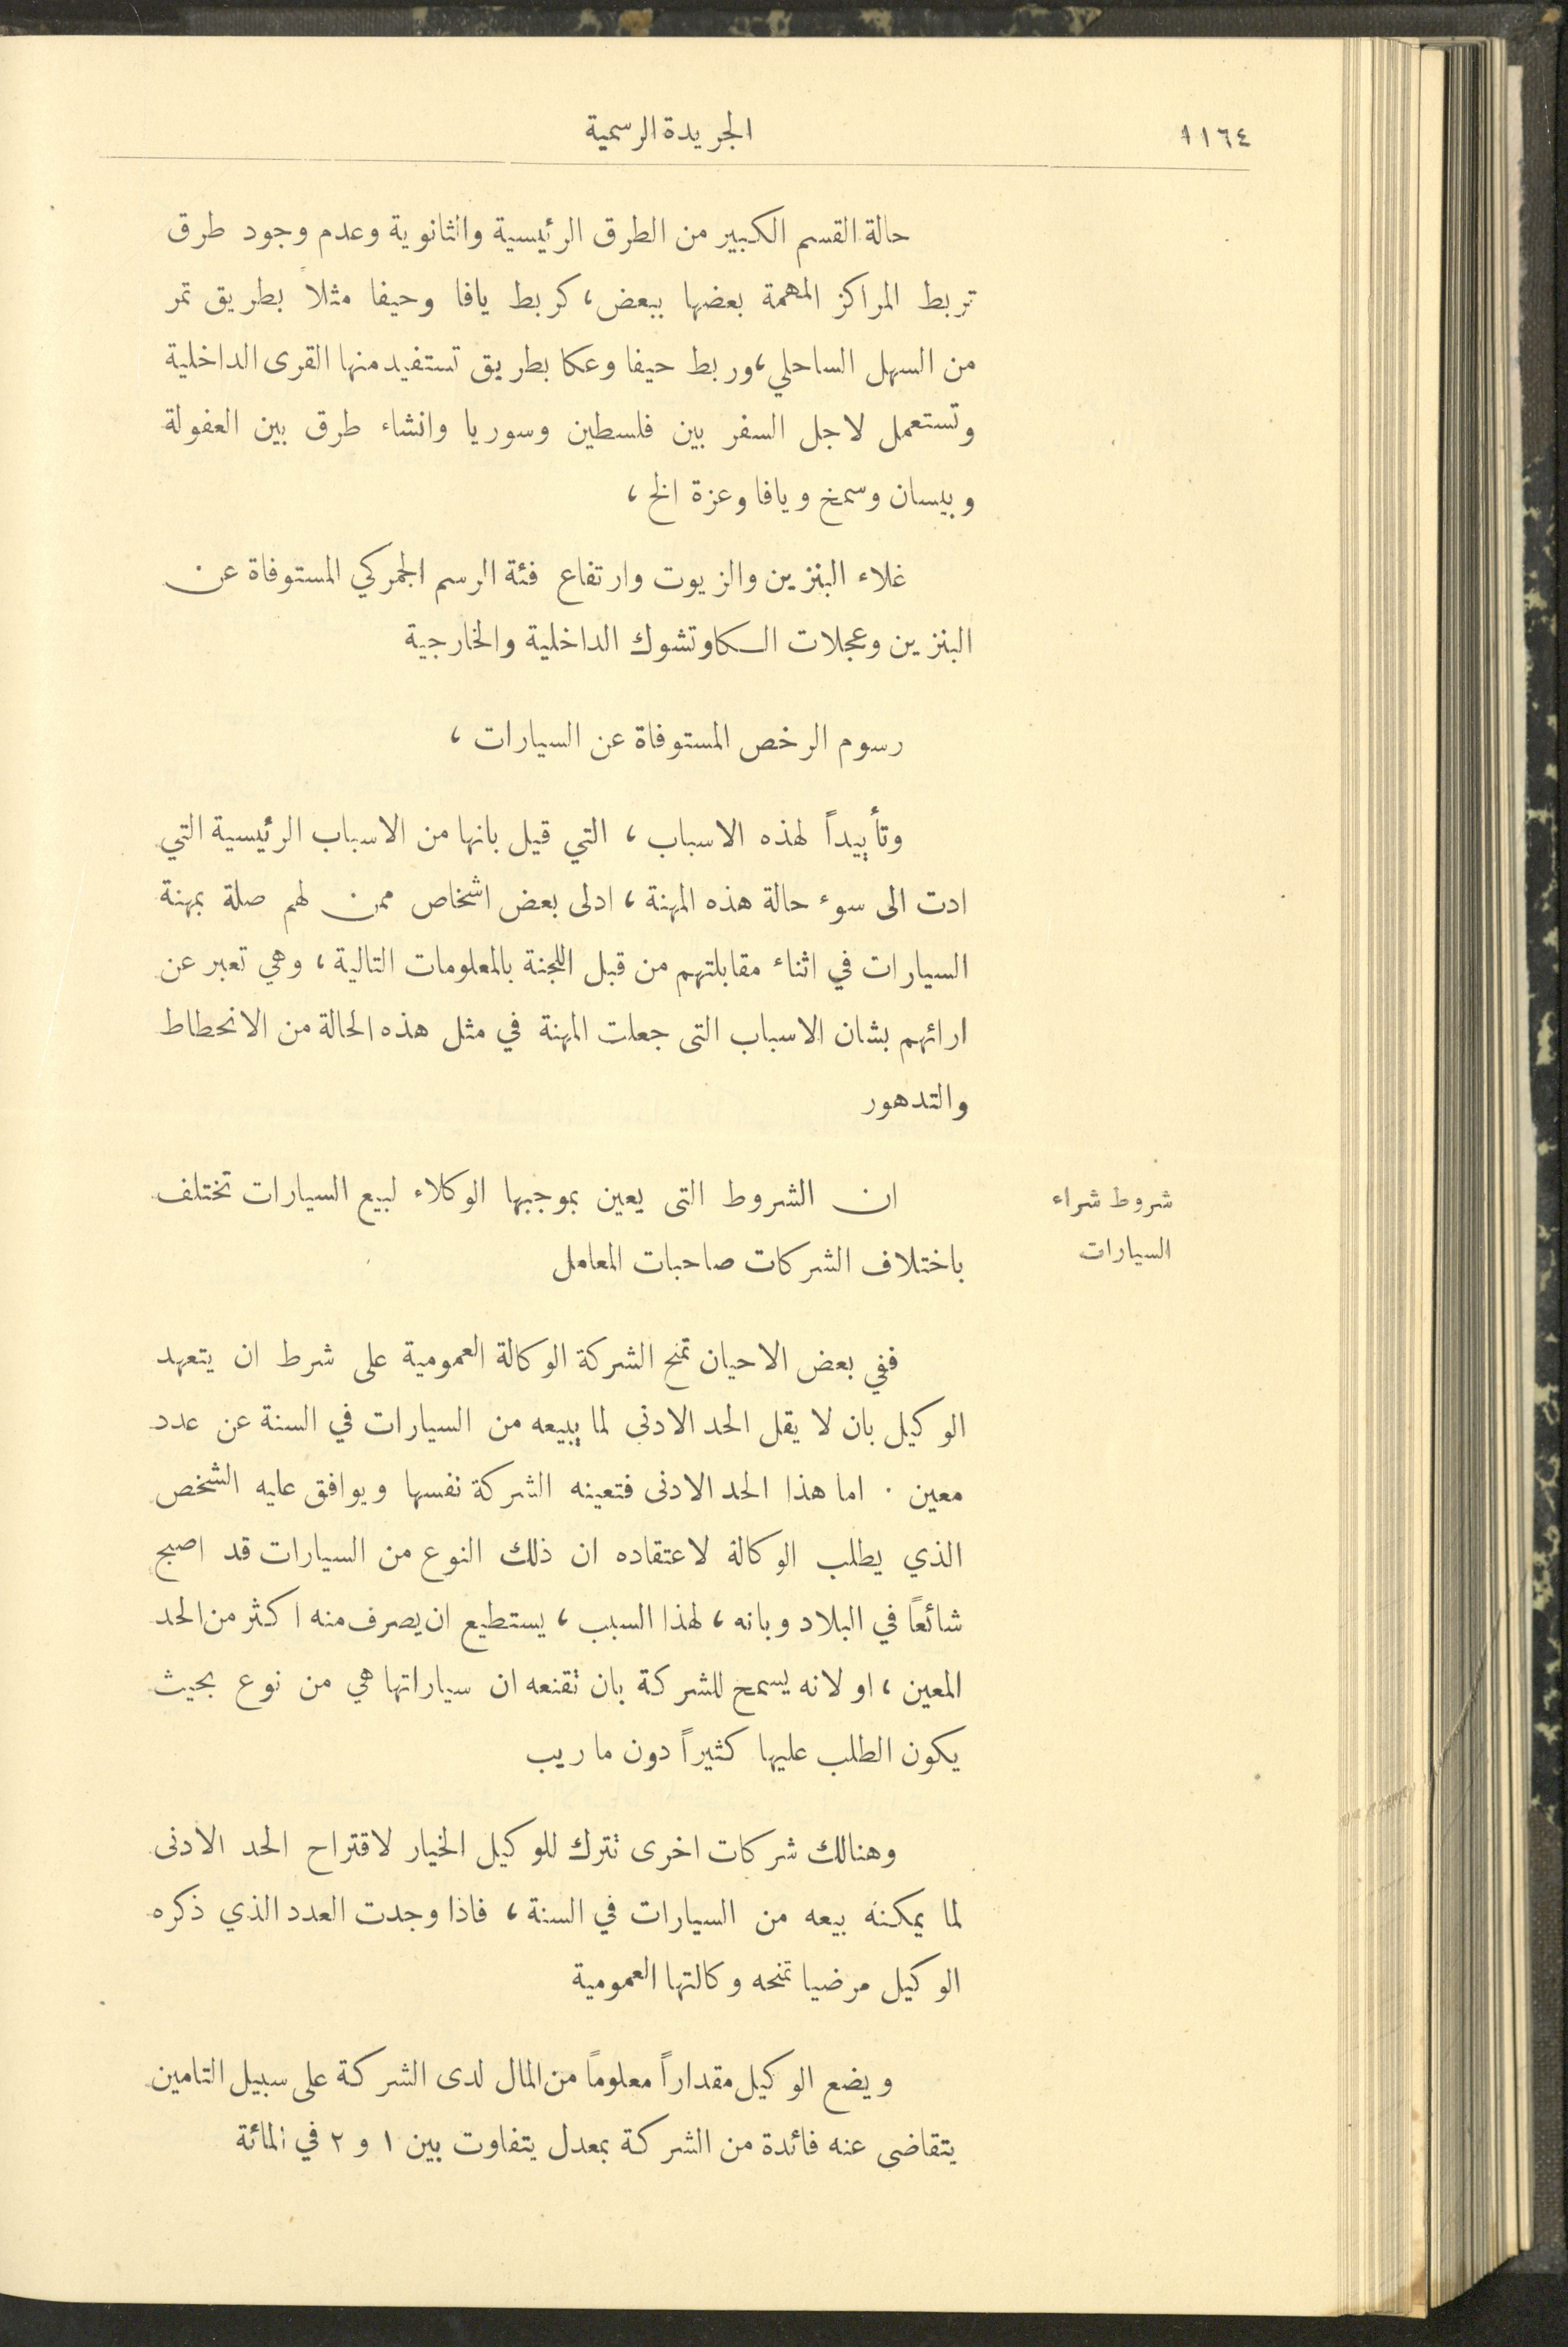 ١١٦٤
الجريدة الرسمية
حالة القسم الكبير من الطرق الرئيسية والثانوية وعدم وجود طرق
تربط المراكز المهمة بعضها ببعض، كربط يافا وحيفا مثلاً بطريق تمر
من السهل الساحلي، وربط حيفا وعكا بطريق تستفيد منها القرى الداخلية
وتستعمل لاجل السفر بين فلسطين وسوريا وانشاء طرق بين العفولة
وبيسان وسمخ ويافا وعزة الخ،
غلاء البنزين والزيوت وارتفاع فئة الرسم الجمركي المستوفاة عن
البنزين وعجلات الكاوتشوك الداخلية والخارجية
رسوم الرخص المستوفاة عن السيارات،
وتأييداً لهذه الاسباب، التي قيل بانها من الاسباب الرئيسية التي
ادت الى سوء حالة هذه المهنة، ادلى بعض اشخاص ممن لهم صلة بمهنة
السيارات في اثناء مقابلتهم من قبل اللجنة بالمعلومات التالية، وهي تعبر عن
ارائهم بشان الاسباب التى جعلت المهنة في مثل هذه الحالة من الانحطاط
والتدهور
شروط شراء
السيارات
ان الشروط التى يعين بموجبها الوكلاء لبيع السيارات تختلف
باختلاف الشركات صاحبات المعامل
ففي بعض الاحيان تمنح الشركة الوكالة العمومية على شرط ان يتعهد
الوكيل بان لا يقل الحد الادنى لما يبيعه من السيارات في السنة عن عدد
معين . اما هذا الحد الادنى فتعينه الشركة نفسها ويوافق عليه الشخص
الذي يطلب الوكالة لاعتقاده ان ذلك النوع من السيارات قد اصبح
شائعاً في البلاد وبانه، لهذا السبب، يستطيع ان يصرف منه اكثر من الحد
المعين، او لانه يسمح للشركة بان تقنعه ان سياراتها هي من نوع بحيث
يكون الطلب عليها كثيراً دون ما ريب
وهنالك شركات اخرى تترك للوكيل الخيار لاقتراح الحد الادنى
لما يمكنه بيعه من السيارات في السنة، فاذا وجدت العدد الذي ذكره
الوكيل مرضيا تمنحه وكالتها العمومية
ويضع الوكيل مقداراً معلوماً من المال لدى الشركة على سبيل التامين
يتقاضى عنه فائدة من الشركة بمعدل يتفاوت بين ١ و ٢ في المائة